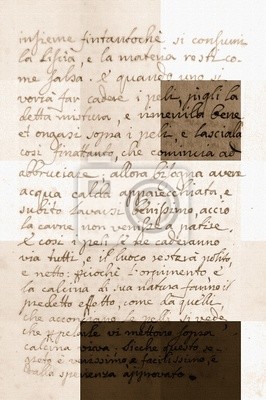 insieme fintandochè si consumi
la lisia, e la materia resti co-
me salsa. e quando uno si
vorrà far cadere i peli, pigli la
detta mistura, e rimenila bene
et ongasi sopra i peli, e lasciala
così finattanto, che comincia ad
abbruciare. allora bisogna avere
acqua calda apparecchiata, e
subito lavarsi benissimo, acciò
la carne non venghi patise.
E così i peli se ne caderanno
via tutti, e il luoco resterà polito,
e netto: perciochè l'orpimento è
la calcina di sua natura fanno il
predetto effetto, come da quelli
che acconciano le pelli si vede,
che pelarle vi mettono sopra
calcina viva. Sicche questo se-
greto è verissimo e facilissimo, e
sperienza approvato.